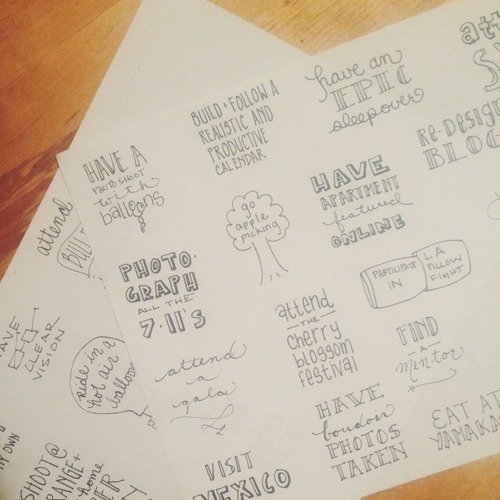 have an
EPIC
sleepover
att
BUILD + FOLLOW A
REALISTIC AND
PRODUCTIVE
CALENDAR
RE-DESIGN
BLOG
HAVE A
PHOTOSHOOT
with
balloons
HAVE
APARTMENT
featured
ONLINE
go
apple
picking
attend
PARTICIPATE
IN
LA
PILLOW
FIGHT
PHOTO-
GRAPH
ALL THE
7-11'S
attend
THE
cherry
blossom
festival
FIND
A
mentor
HAVE
CLEAR
VISION
attend
a
gala
ride in a
hot air
balloon
HAVE
boudoir
PHOTOS
TAKEN
EAT AT
YAMAKA
MY OWN
SHOOT@
RANGE+
home
VISIT
MEXICO